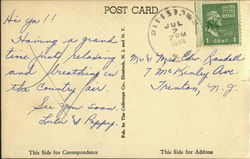 POST CARD
Hi ya!!
Having a grand
time just relaxing
and breathing in
the Country air.
See you soon.
Lulu & Poppy
Pub. by The Collotype Co., Elizabeth, N. J. and N. Y.
JUL
2 PM
1 CENT 1
Mr & Mrs Edw. Randall
7 McKinley Ave.
Trenton, N. J.
This Side for Correspondence
This Side for Address